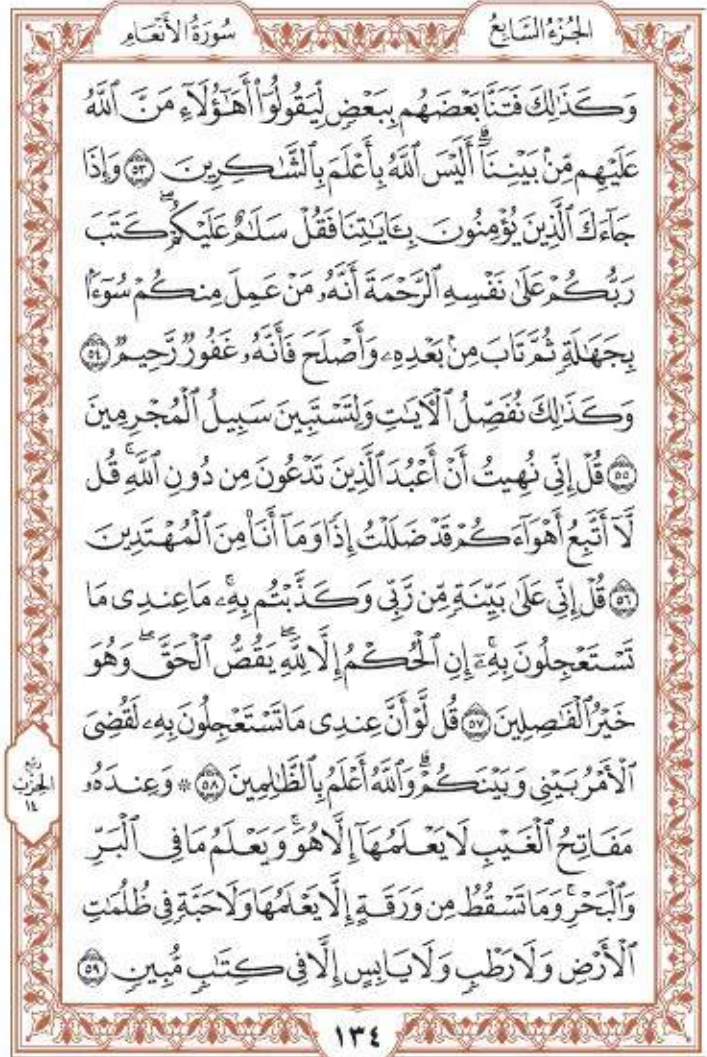 الجُزْءُ السَّابِعُ
سُورَةُ الأَنْعَامِ
وَكَذَٰلِكَ فَتَنَّا بَعْضَهُم بِبَعْضٍ لِّيَقُولُوٓا۟ أَهَٰٓؤُلَآءِ مَنَّ ٱللَّهُ
عَلَيْهِم مِّنۢ بَيْنِنَآ ۗ أَلَيْسَ ٱللَّهُ بِأَعْلَمَ بِٱلشَّٰكِرِينَ ٥٣ وَإِذَا
جَآءَكَ ٱلَّذِينَ يُؤْمِنُونَ بِـَٔايَٰتِنَا فَقُلْ سَلَٰمٌ عَلَيْكُمْ ۖ كَتَبَ
رَبُّكُمْ عَلَىٰ نَفْسِهِ ٱلرَّحْمَةَ أَنَّهُۥ مَنْ عَمِلَ مِنكُمْ سُوٓءًۢا
بِجَهَٰلَةٍ ثُمَّ تَابَ مِنۢ بَعْدِهِۦ وَأَصْلَحَ فَأَنَّهُۥ غَفُورٌ رَّحِيمٌ ٥٤
وَكَذَٰلِكَ نُفَصِّلُ ٱلْـَٔايَٰتِ وَلِتَسْتَبِينَ سَبِيلُ ٱلْمُجْرِمِينَ
٥٥ قُلْ إِنِّى نُهِيتُ أَنْ أَعْبُدَ ٱلَّذِينَ تَدْعُونَ مِن دُونِ ٱللَّهِ ۚ قُل
لَّآ أَتَّبِعُ أَهْوَآءَكُمْ قَدْ ضَلَلْتُ إِذًا وَمَآ أَنَا۠ مِنَ ٱلْمُهْتَدِينَ
٥٦ قُلْ إِنِّى عَلَىٰ بَيِّنَةٍ مِّن رَّبِّى وَكَذَّبْتُم بِهِۦ ۚ مَا عِندِى مَا
تَسْتَعْجِلُونَ بِهِۦٓ ۚ إِنِ ٱلْحُكْمُ إِلَّا لِلَّهِ ۖ يَقُصُّ ٱلْحَقَّ ۖ وَهُوَ
خَيْرُ ٱلْفَٰصِلِينَ ٥٧ قُل لَّوْ أَنَّ عِندِى مَا تَسْتَعْجِلُونَ بِهِۦ لَقُضِىَ
ٱلْأَمْرُ بَيْنِى وَبَيْنَكُمْ ۗ وَٱللَّهُ أَعْلَمُ بِٱلظَّٰلِمِينَ ٥٨ ۞ وَعِندَهُۥ
مَفَاتِحُ ٱلْغَيْبِ لَا يَعْلَمُهَآ إِلَّا هُوَ ۚ وَيَعْلَمُ مَا فِى ٱلْبَرِّ
وَٱلْبَحْرِ ۚ وَمَا تَسْقُطُ مِن وَرَقَةٍ إِلَّا يَعْلَمُهَا وَلَا حَبَّةٍ فِى ظُلُمَٰتِ
ٱلْأَرْضِ وَلَا رَطْبٍ وَلَا يَابِسٍ إِلَّا فِى كِتَٰبٍ مُّبِينٍ ٥٩
رُبْع
الحِزْب
١٤
١٣٤